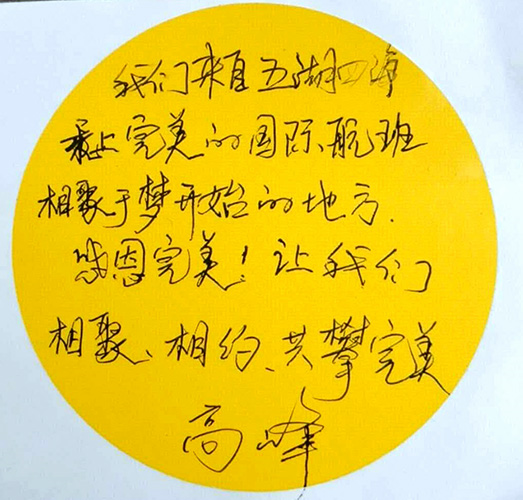 我们来自五湖四海
乘上完美的国际航班
相聚于梦开始的地方.
感恩完美!让我们
相聚、相约、共攀完美
高峰